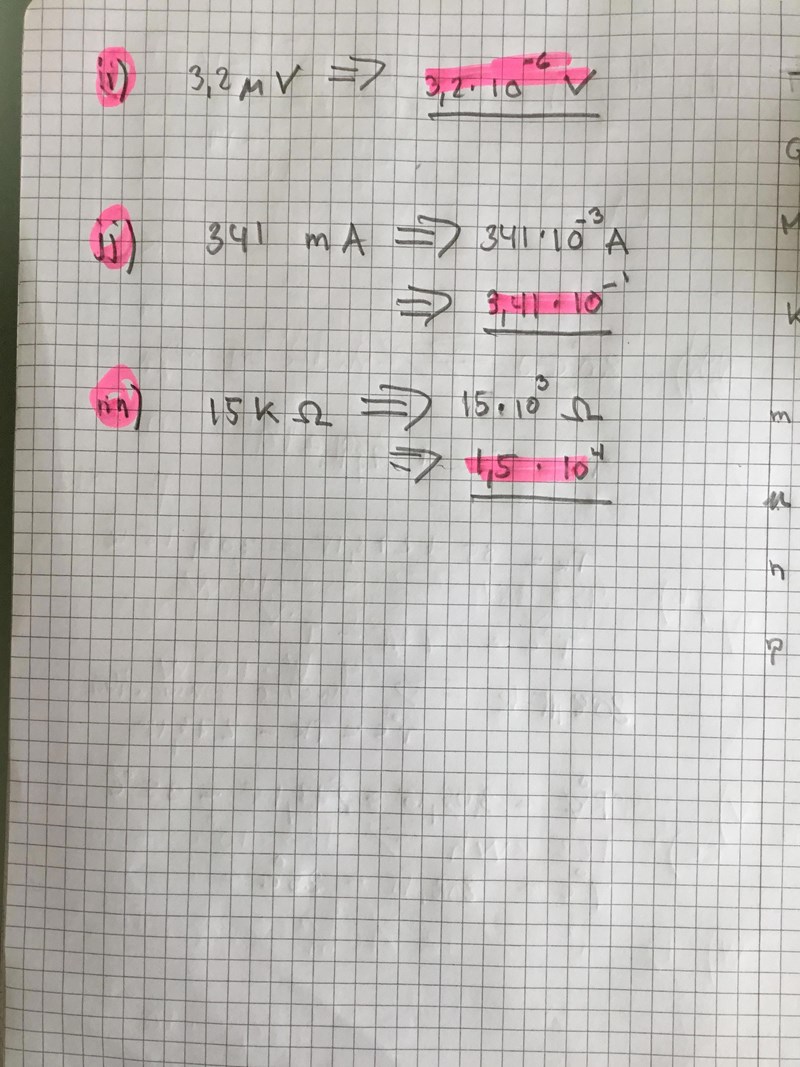 ii) 3,2 μV ⇒ 3,2·10⁻⁶ V
jj) 341 mA ⇒ 341·10⁻³ A
⇒ 3,41·10⁻¹
15 k Ω ⇒ 15·10³ Ω
⇒ 1,5·10⁴
T
G
M
K
m
μ
n
p